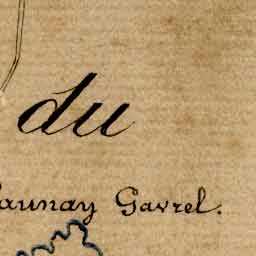 du
Launay Gavrel.